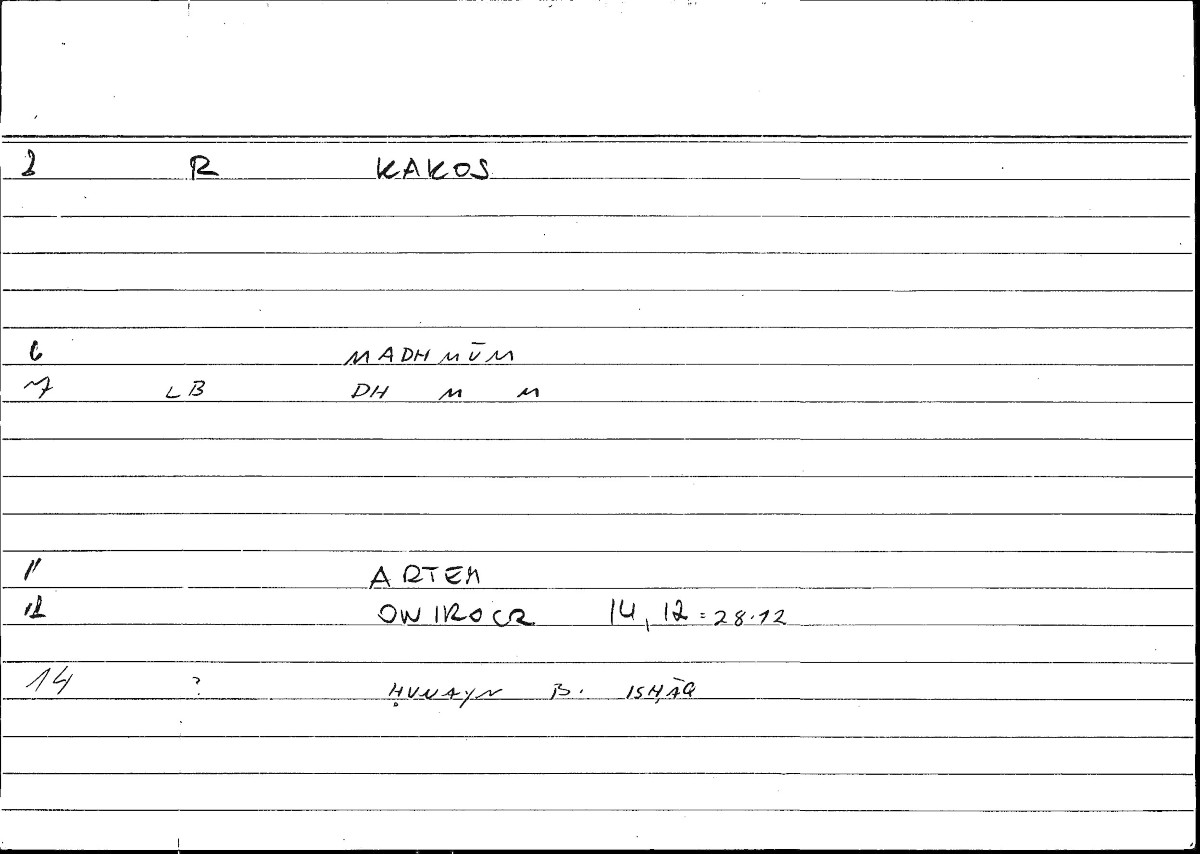 2 R KAKOS
6 MADHMŪM
7 LB DH M M
11 ARTEM
12 ONIROCR 14,12 = 28.12
14 ? ḤUNAYN B. ISḤĀQ